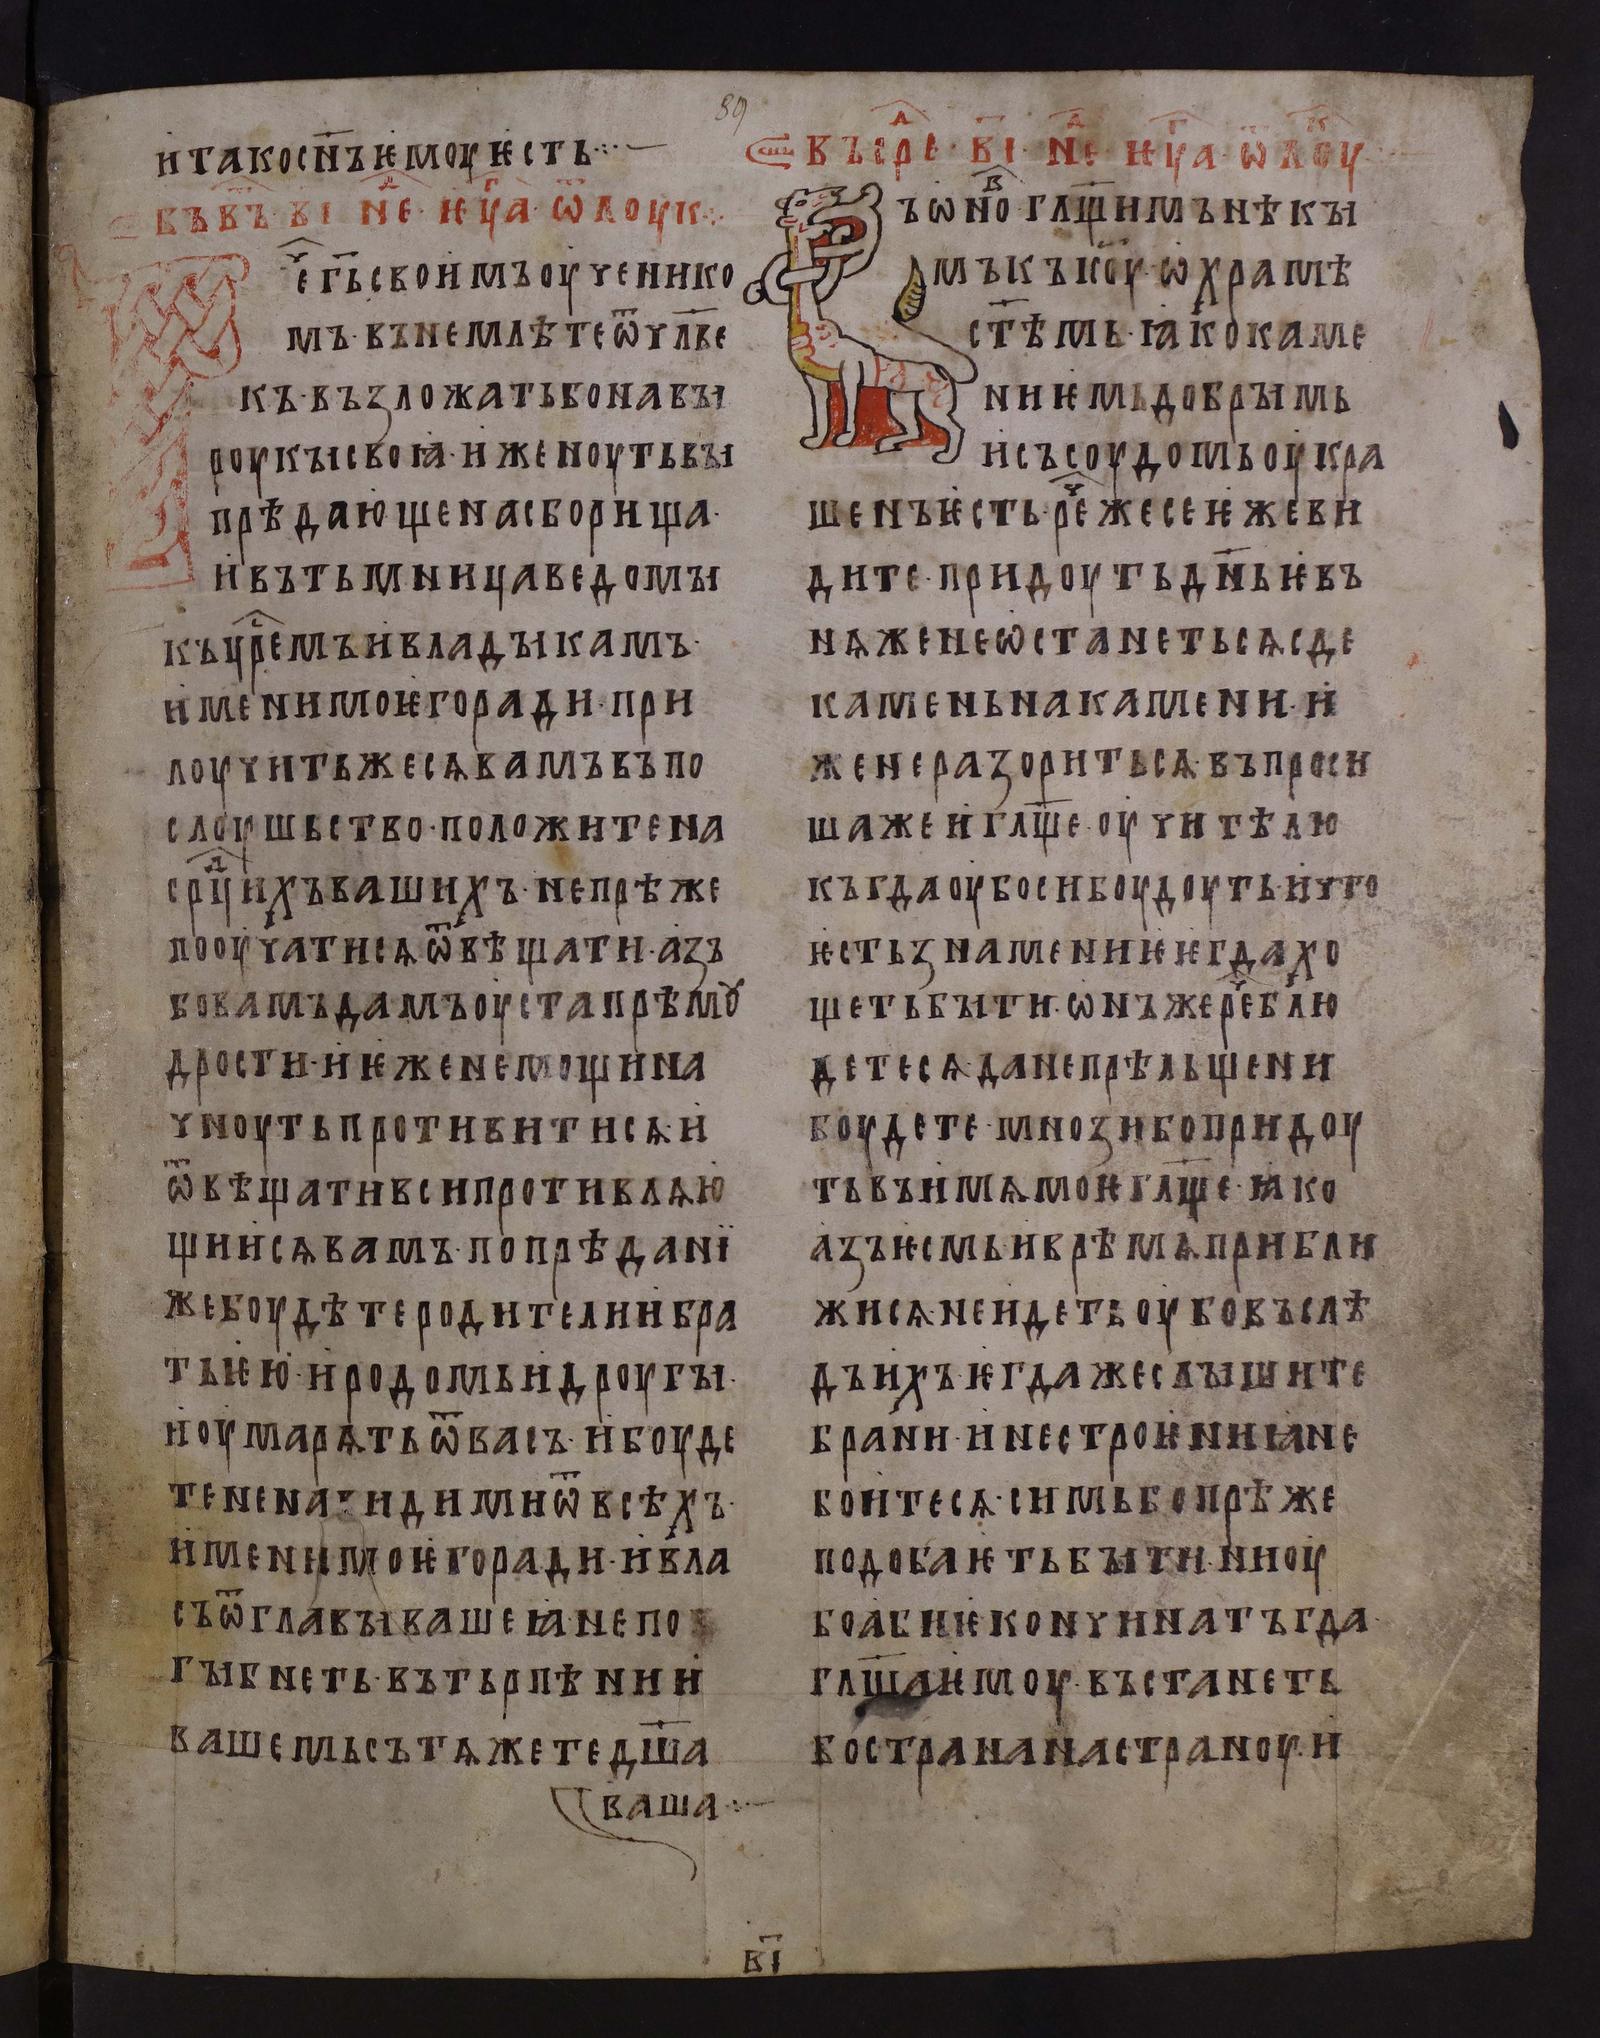 89
и такос҃нъѥмоуѥсть
въвъ҃ · в҃ı · не҃ · еу҃а · ѿлоук
е҃г҃ьсвоимъоученико
мъ · вънемлѣтеѿчл҃ве
къ · възложатьбонавы
роукысвоꙗ · иженоутьвы
прѣдающенасборища ·
ивътьмницаведомы
къцр҃емъивладыкамъ ·
именимоѥгоради · при
лоучитьжесѧвамъвъпо
слоушьство · положитена
срц҃ихъвашихъ · непрѣже
пооучатисѧѿвѣщати · азъ
бовамъдамъоустапрѣмꙋ
дрости · иѥженемощина
чноутьпротивитисѧ · и
ѿвѣщативсипротивлѧю
щиисѧвамъ · попрѣданı
жебоудѣтеродителиибра
тьѥю · иродомьидроугы ·
иоумарѧтьѿвасъ · ибоуде
тененавидимиѿвсѣхъ ·
именимоѥгоради · ивла
съѿглавывашеꙗнепо
гыбнеть · вътьрпѣнии
вашемьсътѧжетедш҃а
ваша
въсре҃ · в҃ı · не҃ · еу҃а · ѿлоу
ъѡно҃ · глщ҃имънѣкы
мъкъı҃соу · ѡхрамѣ
ст҃ѣмь · ꙗкокаме
ниѥмьдобрымь
исъсоудомьоукра
шенъѥсть · ре҃жесеѥжеви
дите · придоутьдн҃ьѥвъ
нѧженеѡстанетьсѧсде
каменьнакамени · и
женеразоритьсѧ · въпроси
шажеиглщ҃е · оучитѣлю
къгдаоубосибоудоуть · ичто
ѥстьзнамениѥѥгдахо
щетьбыти · ѡнъжере҃блю
детесѧданепрѣльщени
боудете · мнозибопридоу
тьвъимѧмоѥглщ҃е · ꙗко
азъѥсмьиврѣмѧприбли
жисѧнеидетьоубовъслѣ
дъихъ · ѥгдажеслышите
брани · инестроѥниꙗне
боитесѧ · симьбопрѣже
подобаѥтьбыти · нноу
боабиѥкончинатъгда
глш҃аѥмоу · въстанеть
бострананастраноу · и
в҃ı